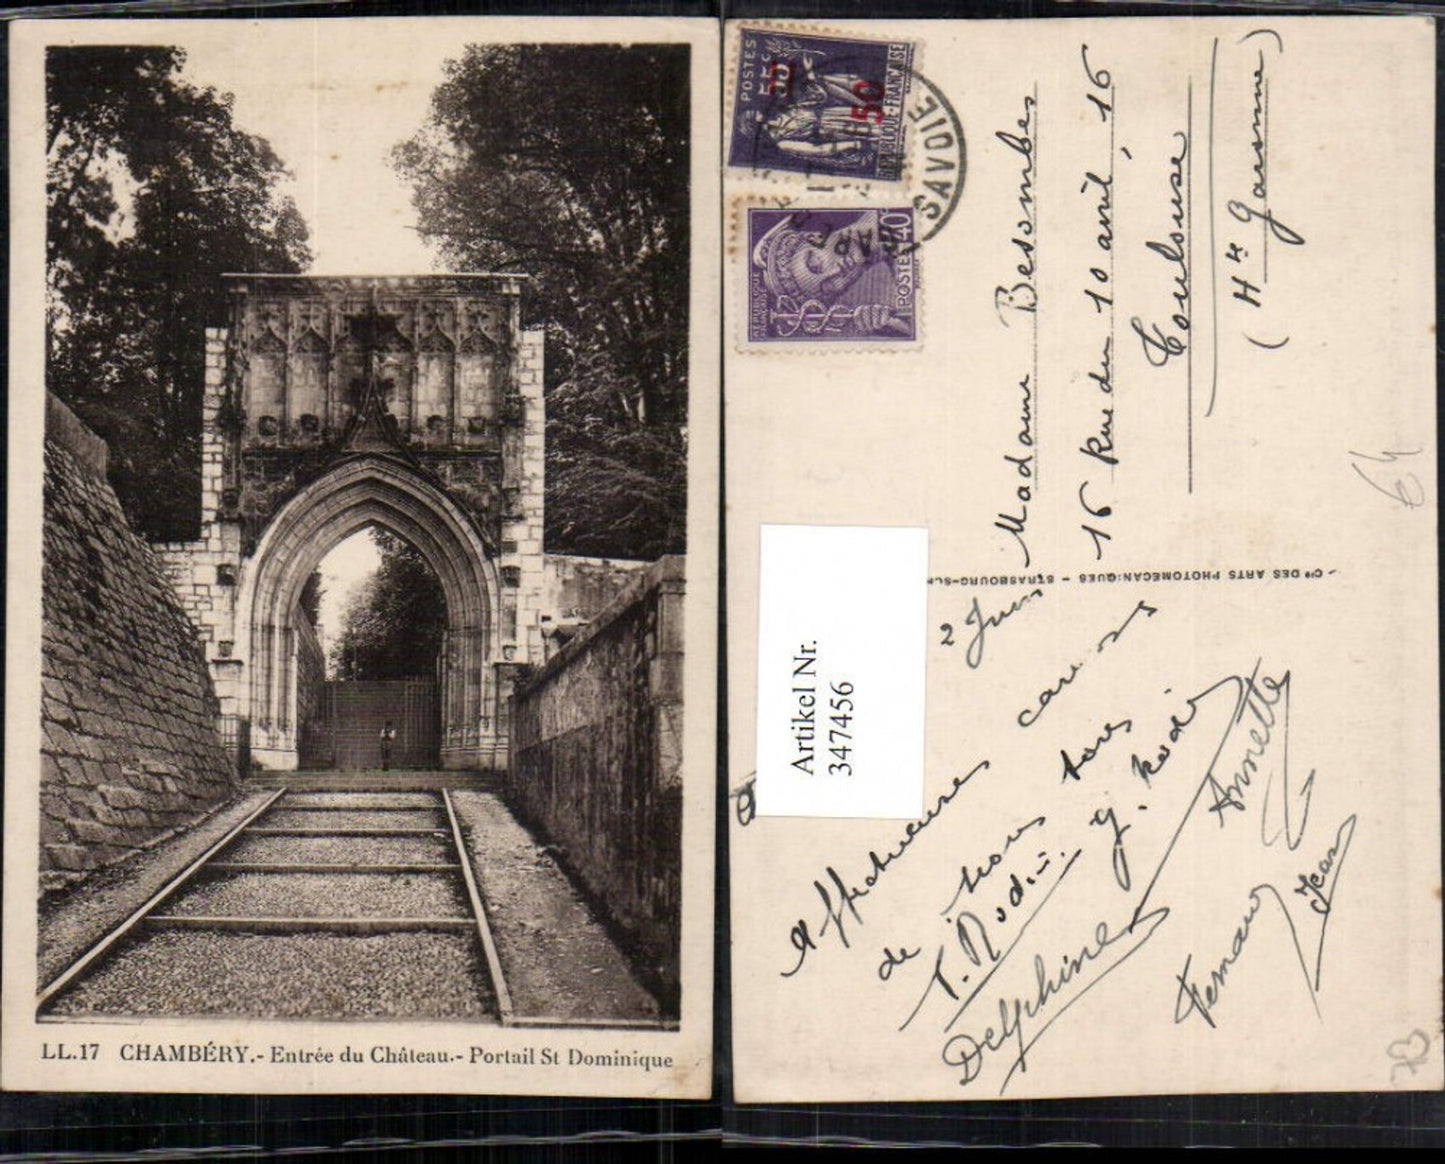 LL.17 CHAMBÉRY.- Entrée du Château.- Portail St Dominique
POSTES
55
50
REPUBLIQUE-FRANÇAISE
SAVOIE
REPUBLIQUE
FRANÇAISE
POSTES
40
Madame Besombes
16 Rue du 10 avril, 16
Toulouse
(Hte Garonne)
Cie DES ARTS PHOTOMECANIQUES - STRASBOURG-
Artikel Nr.
347456
2 Juin
Affectueuses caresses
de nous tous
Delphine
Annette
Fernand
Jean
64